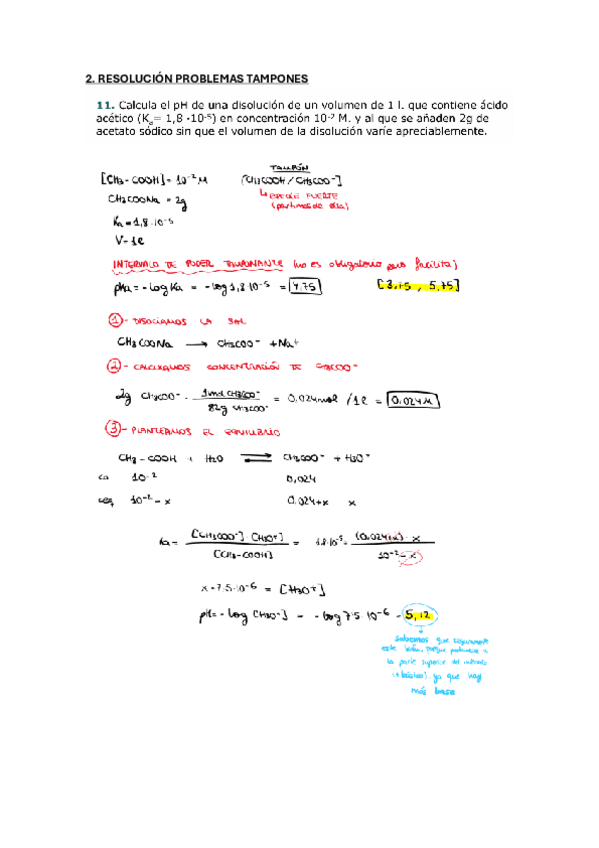 2. RESOLUCIÓN PROBLEMAS TAMPONES
11. Calcula el pH de una disolución de un volumen de 1 l. que contiene ácido
acético (Ka= 1,8 ·10-5) en concentración 10-2 M. y al que se añaden 2g de
acetato sódico sin que el volumen de la disolución varíe apreciablemente.
TAMPÓN
[CH3-COOH] = 10-2 M (CH3COOH / CH3COO-]
CH3COONa = 2g ↳ ESPECIE FUERTE
(partimos de ella)
Ka = 1,8·10-5
V = 1l
INTERVALO DE PODER TAMPONANTE (no es obligatorio pero facilita)
pKa = -log Ka = -log 1,8·10-5 = 4,75 [3,75 , 5,75]
1 - DISOCIAMOS LA SAL
CH3COONa → CH3COO- + Na+
2 - CALCULAMOS CONCENTRACIÓN DE CH3COO-
2g CH3COO- · 1mol CH3COO- / 82g CH3COO- = 0,024mol /1l = 0,024M
3 - PLANTEAMOS EL EQUILIBRIO
CH3-COOH + H2O ⇌ CH3COO- + H3O+
co 10-2 0,024
ceq 10-2 - x 0,024+x x
Ka = [CH3COO-]·[H3O+] / [CH3-COOH] = 1,8·10-5 = (0,024+x)·x / 10-2 - x
x = 7,5·10-6 = [H3O+]
pH = -log [H3O+] = -log 7,5·10-6 = 5,12
sabemos que
este bien, porque pertenece a
la parte superior del
(+ básico), ya que hay
más base